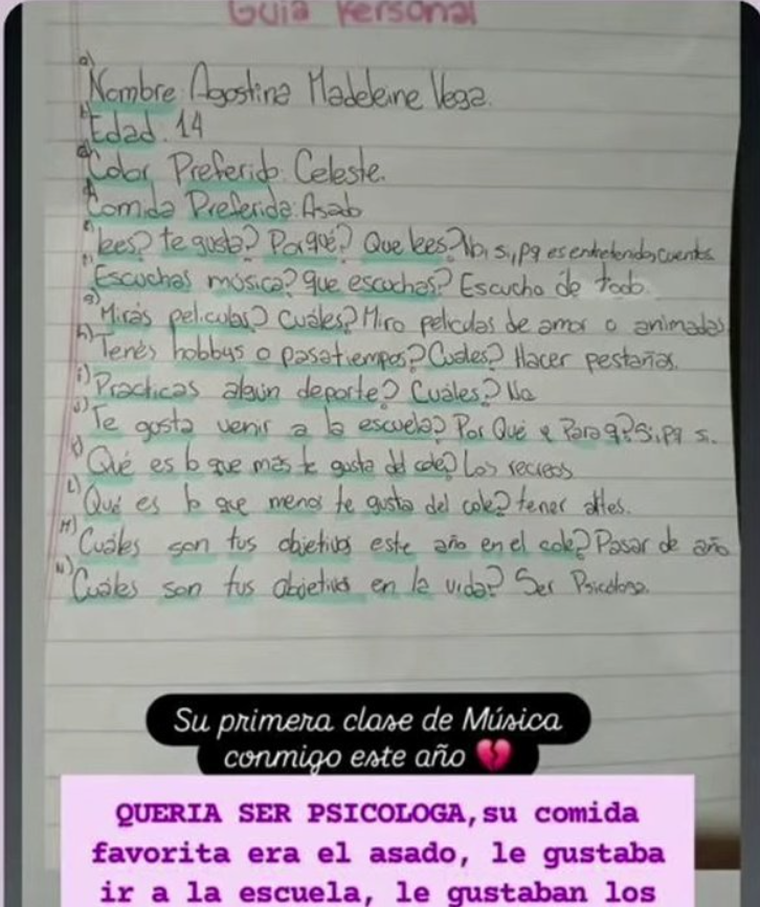 Guia Personal
a) Nombre: Agostina Madeleine Vega.
b) Edad: 14
c) Color Preferido: Celeste.
d) Comida Preferida: Asado
e) lees? te gusta? Porqué? Que lees? No, si, pq es entretenido, cuentos
f) Escuchas música? que escuchas? Escucho de todo.
g) Mirás peliculas? Cuáles? Miro peliculas de amor o animadas
h) Tenés hobbys o pasatiempos? Cuales? Hacer pestañas.
i) Practicas algún deporte? Cuáles? No
j) Te gusta venir a la escuela? Por Qué y Para q? Si, pq si.
Qué es lo que más te gusta del cole? Los recreos
L) Qué es lo que menos te gusta del cole? tener
M) Cuáles son tus objetivos este año en el cole? Pasar de año
N) Cuáles son tus objetivos en la vida? Ser Psicóloga.
Su primera clase de Música
conmigo este año 💔
QUERIA SER PSICOLOGA, su comida
favorita era el asado, le gustaba
ir a la escuela, le gustaban los